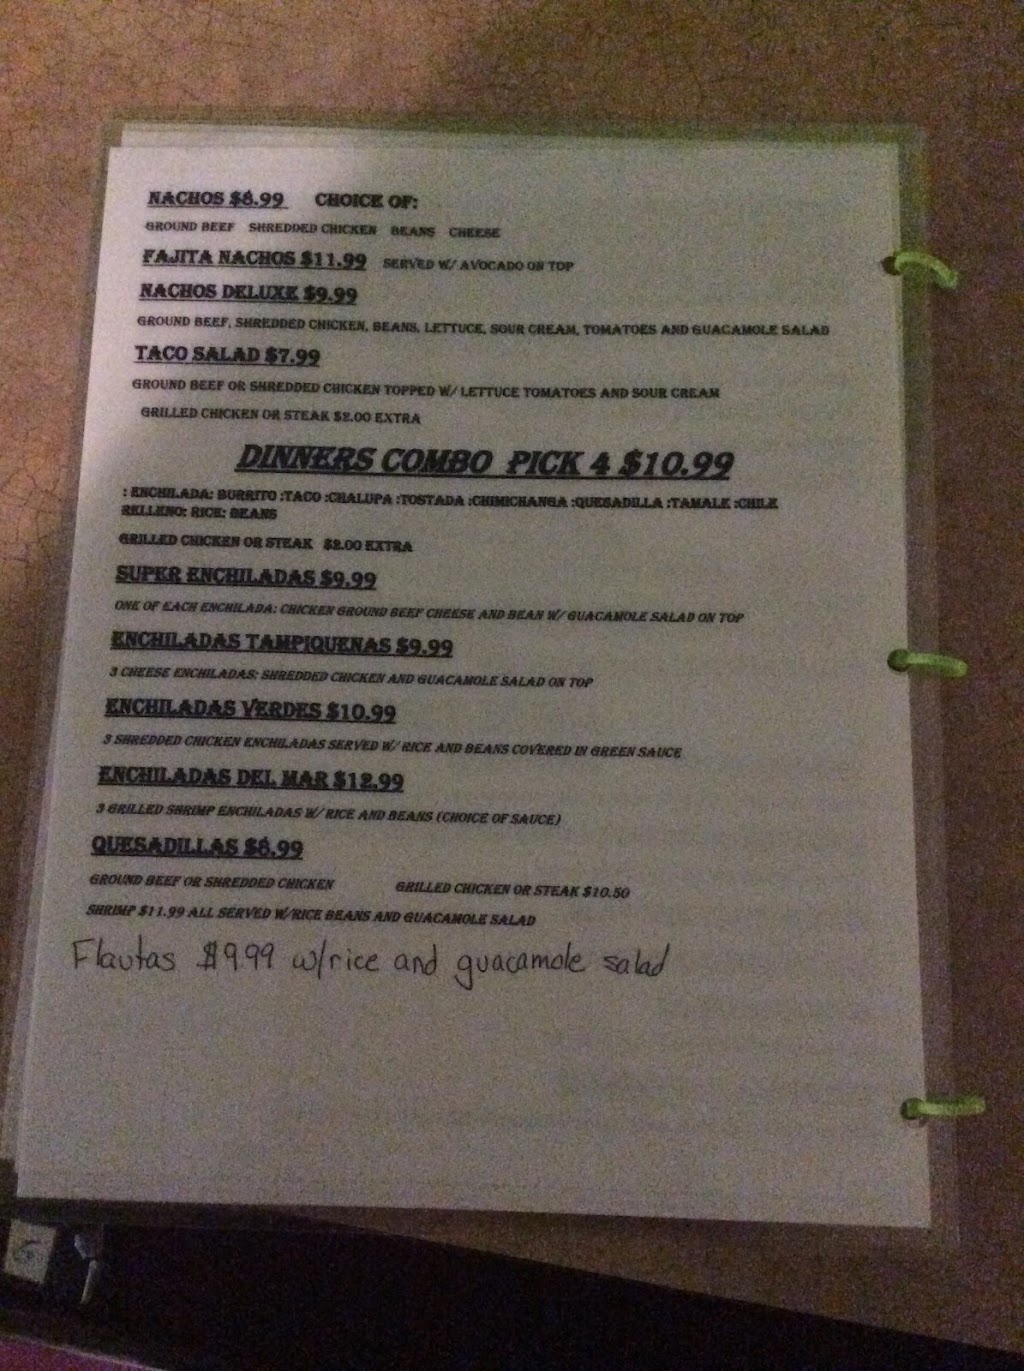 NACHOS $8.99 CHOICE OF:
GROUND BEEF SHREDDED CHICKEN BEANS CHEESE
FAJITA NACHOS $11.99 SERVED W/ AVOCADO ON TOP
NACHOS DELUXE $9.99
GROUND BEEF, SHREDDED CHICKEN, BEANS, LETTUCE, SOUR CREAM, TOMATOES AND GUACAMOLE SALAD
TACO SALAD $7.99
GROUND BEEF OR SHREDDED CHICKEN TOPPED W/ LETTUCE TOMATOES AND SOUR CREAM
GRILLED CHICKEN OR STEAK $2.00 EXTRA
DINNERS COMBO PICK 4 $10.99
: ENCHILADA: BURRITO :TACO :CHALUPA :TOSTADA :CHIMICHANGA :QUESADILLA :TAMALE :CHILE
RELLENO: RICE: BEANS
GRILLED CHICKEN OR STEAK $2.00 EXTRA
SUPER ENCHILADAS $9.99
ONE OF EACH ENCHILADA: CHICKEN GROUND BEEF CHEESE AND BEAN W/ GUACAMOLE SALAD ON TOP
ENCHILADAS TAMPIQUENAS $9.99
3 CHEESE ENCHILADAS: SHREDDED CHICKEN AND GUACAMOLE SALAD ON TOP
ENCHILADAS VERDES $10.99
3 SHREDDED CHICKEN ENCHILADAS SERVED W/ RICE AND BEANS COVERED IN GREEN SAUCE
ENCHILADAS DEL MAR $12.99
3 GRILLED SHRIMP ENCHILADAS W/ RICE AND BEANS (CHOICE OF SAUCE)
QUESADILLAS $8.99
GROUND BEEF OR SHREDDED CHICKEN GRILLED CHICKEN OR STEAK $10.50
SHRIMP $11.99 ALL SERVED W/RICE BEANS AND GUACAMOLE SALAD
Flautas $9.99 w/rice and guacamole salad